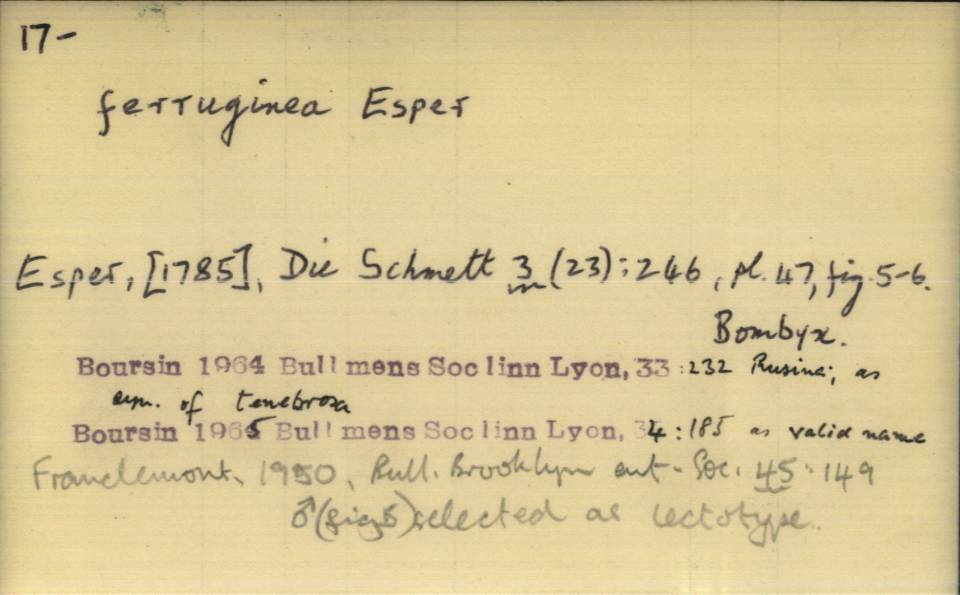 17-
ferruginea Esper
Esper, [1785], Die Schmett 3 (23): 246, pl. 47, fig. 5-6.
Bombyx.
Boursin 1964 Bull mens Soc linn Lyon, 33 :232 Rusina; as
syn. of tenebrosa
Boursin 1965 Bull mens Soc linn Lyon, 34 : 185 as valid name
Franclemont, 1950, Bull. Brooklyn ent. Soc. 45 : 149
♂ (fig 5) selected as lectotype.